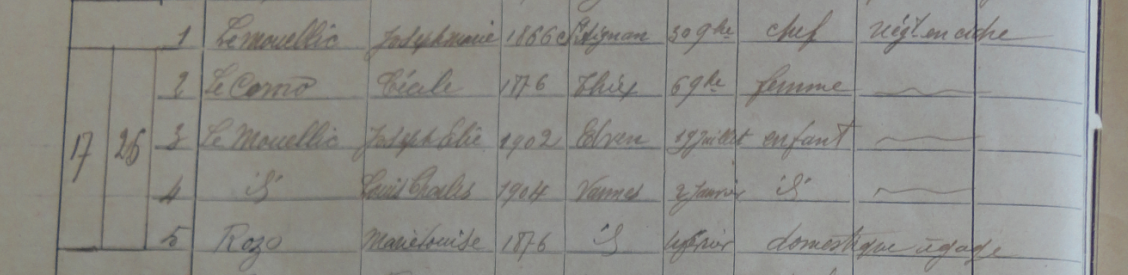 1 Le Mouellic Joseph Marie 1866 St Ignan 30 9bre chef Négt en cidre
2 Le Corno Cécile 1876 Theix 6 9bre femme
17 26 3 Le Mouellic Joseph Elie 1902 Elven 19 juillet enfant
4 id Louis Charles 1904 Vannes 2 janvier id
5 Rozo Marie Louise 1876 id domestique à gage